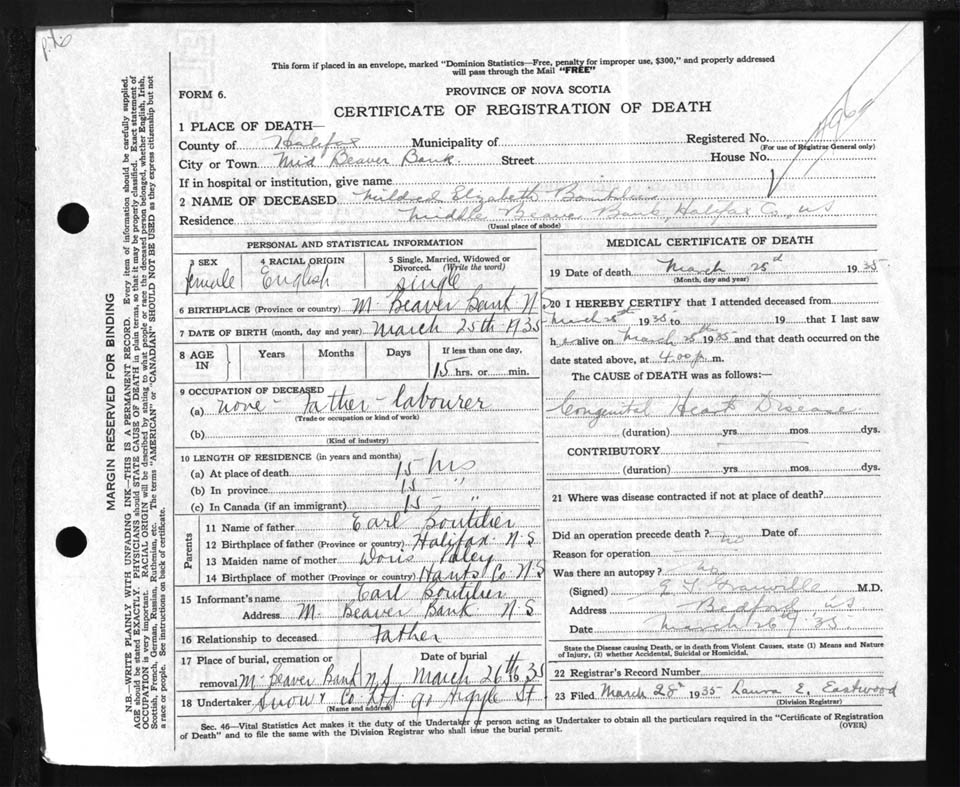 p.t.o
This form if placed in an envelope, marked "Dominion Statistics—Free, penalty for improper use, $300," and properly addressed
will pass through the Mail "FREE"
FORM 6.
PROVINCE OF NOVA SCOTIA
CERTIFICATE OF REGISTRATION OF DEATH
1 PLACE OF DEATH—
County of Halifax Municipality of Registered No.
(For use of Registrar General only)
City or Town Mid Beaver Bank Street House No.
If in hospital or institution, give name
2 NAME OF DECEASED Mildred Elizabeth Boutilier
Residence Middle Beaver Bank, Halifax Co., NS
(Usual place of abode)
PERSONAL AND STATISTICAL INFORMATION
3 SEX female
4 RACIAL ORIGIN English
5 Single, Married, Widowed or Divorced. (Write the word) single
6 BIRTHPLACE (Province or country) M. Beaver Bank N S
7 DATE OF BIRTH (month, day and year) March 25th 1935
8 AGE IN Years Months Days If less than one day, 15 hrs. or min.
9 OCCUPATION OF DECEASED
(a) none - Father - Labourer
(Trade or occupation or kind of work)
(b)
(Kind of industry)
10 LENGTH OF RESIDENCE (in years and months)
(a) At place of death 15 hrs
(b) In province 15 "
(c) In Canada (if an immigrant) 15 "
Parents
11 Name of father Earl Boutilier
12 Birthplace of father (Province or country) Halifax N.S
13 Maiden name of mother Doris
14 Birthplace of mother (Province or country) Hants Co. N.S
15 Informant's name Earl Boutilier
Address M. Beaver Bank N.S
16 Relationship to deceased Father
17 Place of burial, cremation or removal M. Beaver Bank N.S. Date of burial March 26th 1935
18 Undertaker Snow & Co. Ltd 90 Argyle St
(Name and address)
MEDICAL CERTIFICATE OF DEATH
19 Date of death March 25th 1935
(Month, day and year)
20 I HEREBY CERTIFY that I attended deceased from
March 25th 1935 to 19 that I last saw
her alive on March 25th 1935 and that death occurred on the
date stated above, at 4.00 p. m.
The CAUSE of DEATH was as follows:—
Congenital Heart Disease
(duration) yrs mos dys.
CONTRIBUTORY
(duration) yrs mos dys.
21 Where was disease contracted if not at place of death?
Did an operation precede death? no Date of
Reason for operation
Was there an autopsy? no
(Signed) Granville M.D.
Address Bedford, NS
Date March 26th 35
State the Disease causing Death, or in death from Violent Causes, state (1) Means and Nature
of Injury, (2) whether Accidental, Suicidal or Homicidal.
22 Registrar's Record Number
23 Filed March 28th 1935 Laura E. Eastwood
(Division Registrar)
Sec. 46—Vital Statistics Act makes it the duty of the Undertaker or person acting as Undertaker to obtain all the particulars required in the "Certificate of Registration
of Death" and to file the same with the Division Registrar who shall issue the burial permit.
(OVER)
MARGIN RESERVED FOR BINDING
N.B.—WRITE PLAINLY WITH UNFADING INK—THIS IS A PERMANENT RECORD. Every item of information should be carefully supplied.
AGE should be stated EXACTLY. PHYSICIANS should STATE CAUSE OF DEATH in plain terms, so that it may be properly classified. Exact statement of
OCCUPATION is very important. RACIAL ORIGIN will be described by stating to what people or race the deceased person belonged, whether English, Irish,
Scottish, French, German, Russian, Ruthenian, etc. The terms "AMERICAN" or "CANADIAN" SHOULD NOT BE USED as they express citizenship but not
a race or people. See instructions on back of certificate.